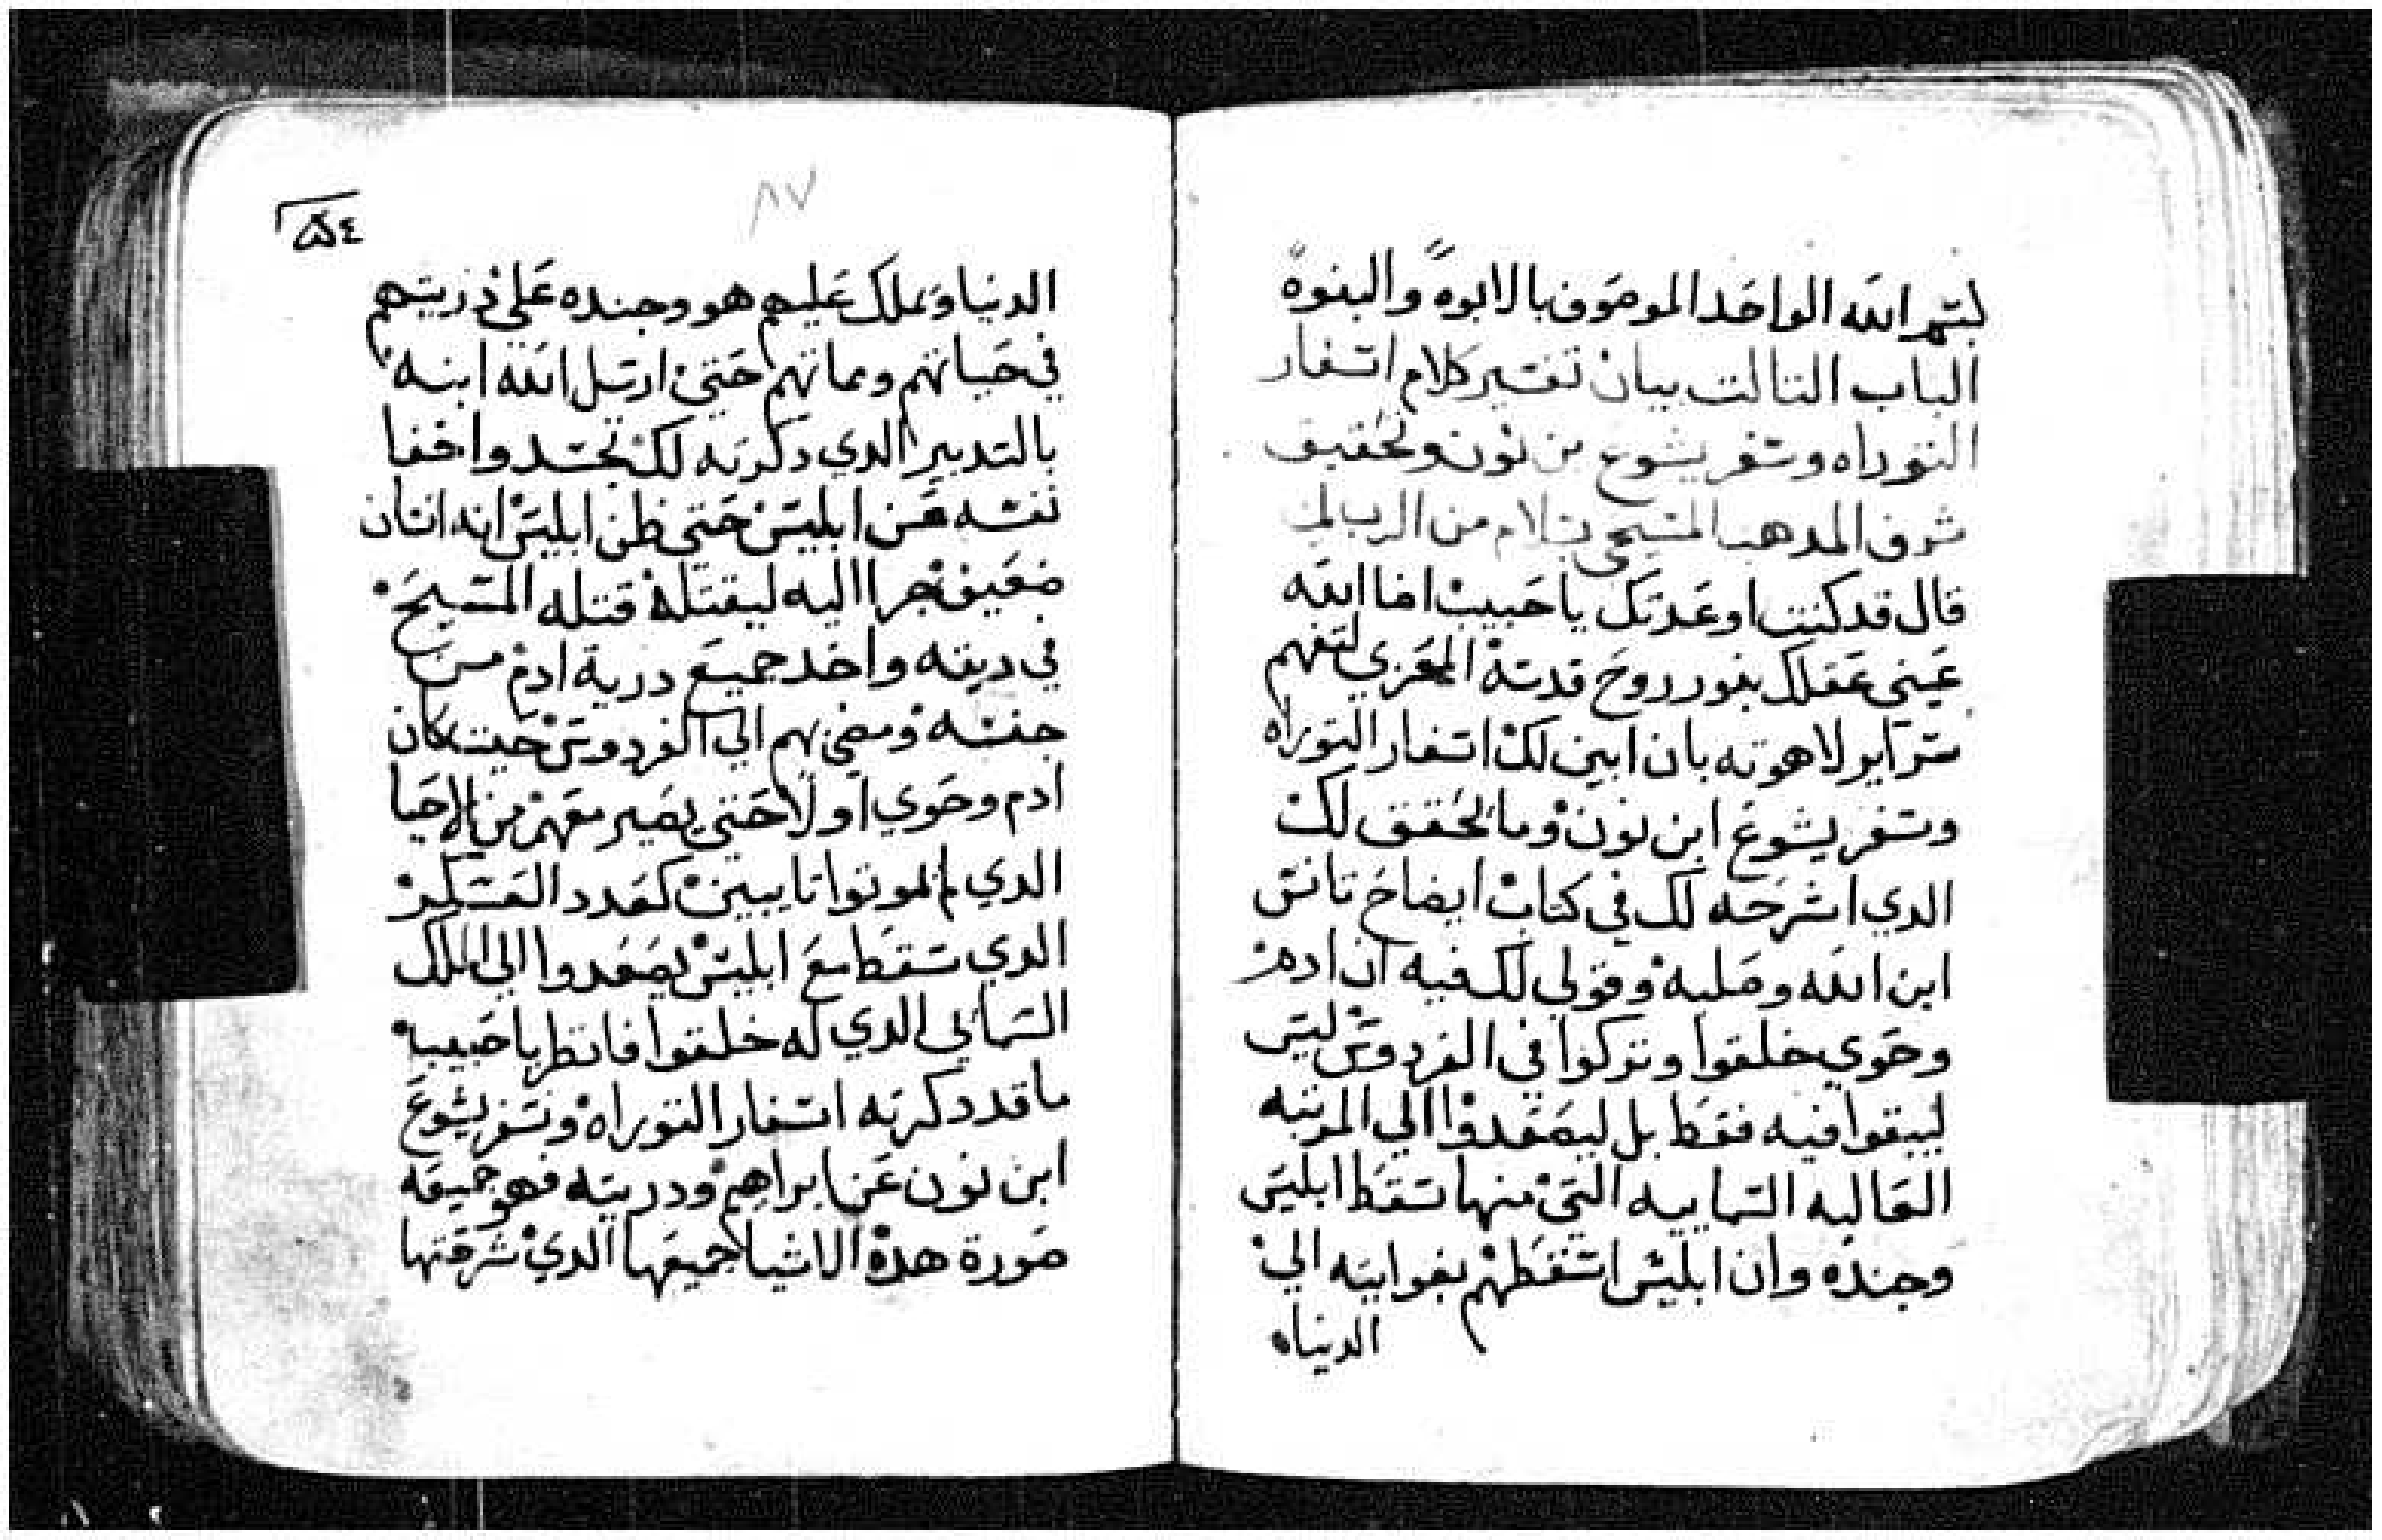 بسم الله الواحد الموصوف بالابوه والبنوه
الباب التالت بيان تفسير كلام اسفار
التوراه وسفر يشوع بن نون وتحقيق
شرف المدهب المسيحي بسلام من الرب امين
قال قد كنت اوعدتك يا حبيب اضا الله
عيني عقلك بنور روح قدسه المعزي لتفهم
سراير لاهوته بان ابين لك اسفار التوراه
وسفر يشوع ابن نون وما تحقق لك
الدي اشرحه لك في كتاب ايضاح تانس
ابن الله وصلبه وقولي لك فيه ان ادم
وحوي خلقوا وتركوا في الفردوس ليس
ليبقوا فيه فقط بل ليصعدوا الي المرتبه
العاليه السماييه التي منها سقط ابليس
وجنده وان ابليس اسقطهم بغوايته الي
الدنيا
٨٧
٥٤
الدنيا وتملك عليهم هو وجنده علي دريتهم
في حياتهم ومماتهم حتي ارسل الله ابنه
بالتدبير الدي دكرته لك تجسد واخفا
نفسه عن ابليس حتي ظن ابليس انه انسان
ضعيف جرا اليه ليقتله قتله المسيح
في ديته واخد جميع درية ادم من
حبسه ومضي بهم الي الفردوس حيت كان
ادم وحوي اولا حتي يصير معهم من الاحيا
الدي لم يموتوا تايبين كعدد العسكر
الدي سقط مع ابليس يصعدوا الي الملك
السمائي الدي له خلقوا فانظر يا حبيب
ما قد دكرته اسفار التوراه وسفر يشوع
ابن نون عن ابراهيم ودريته فهو جميعه
صورة هده الاشيا جميعها الدي شرحتها